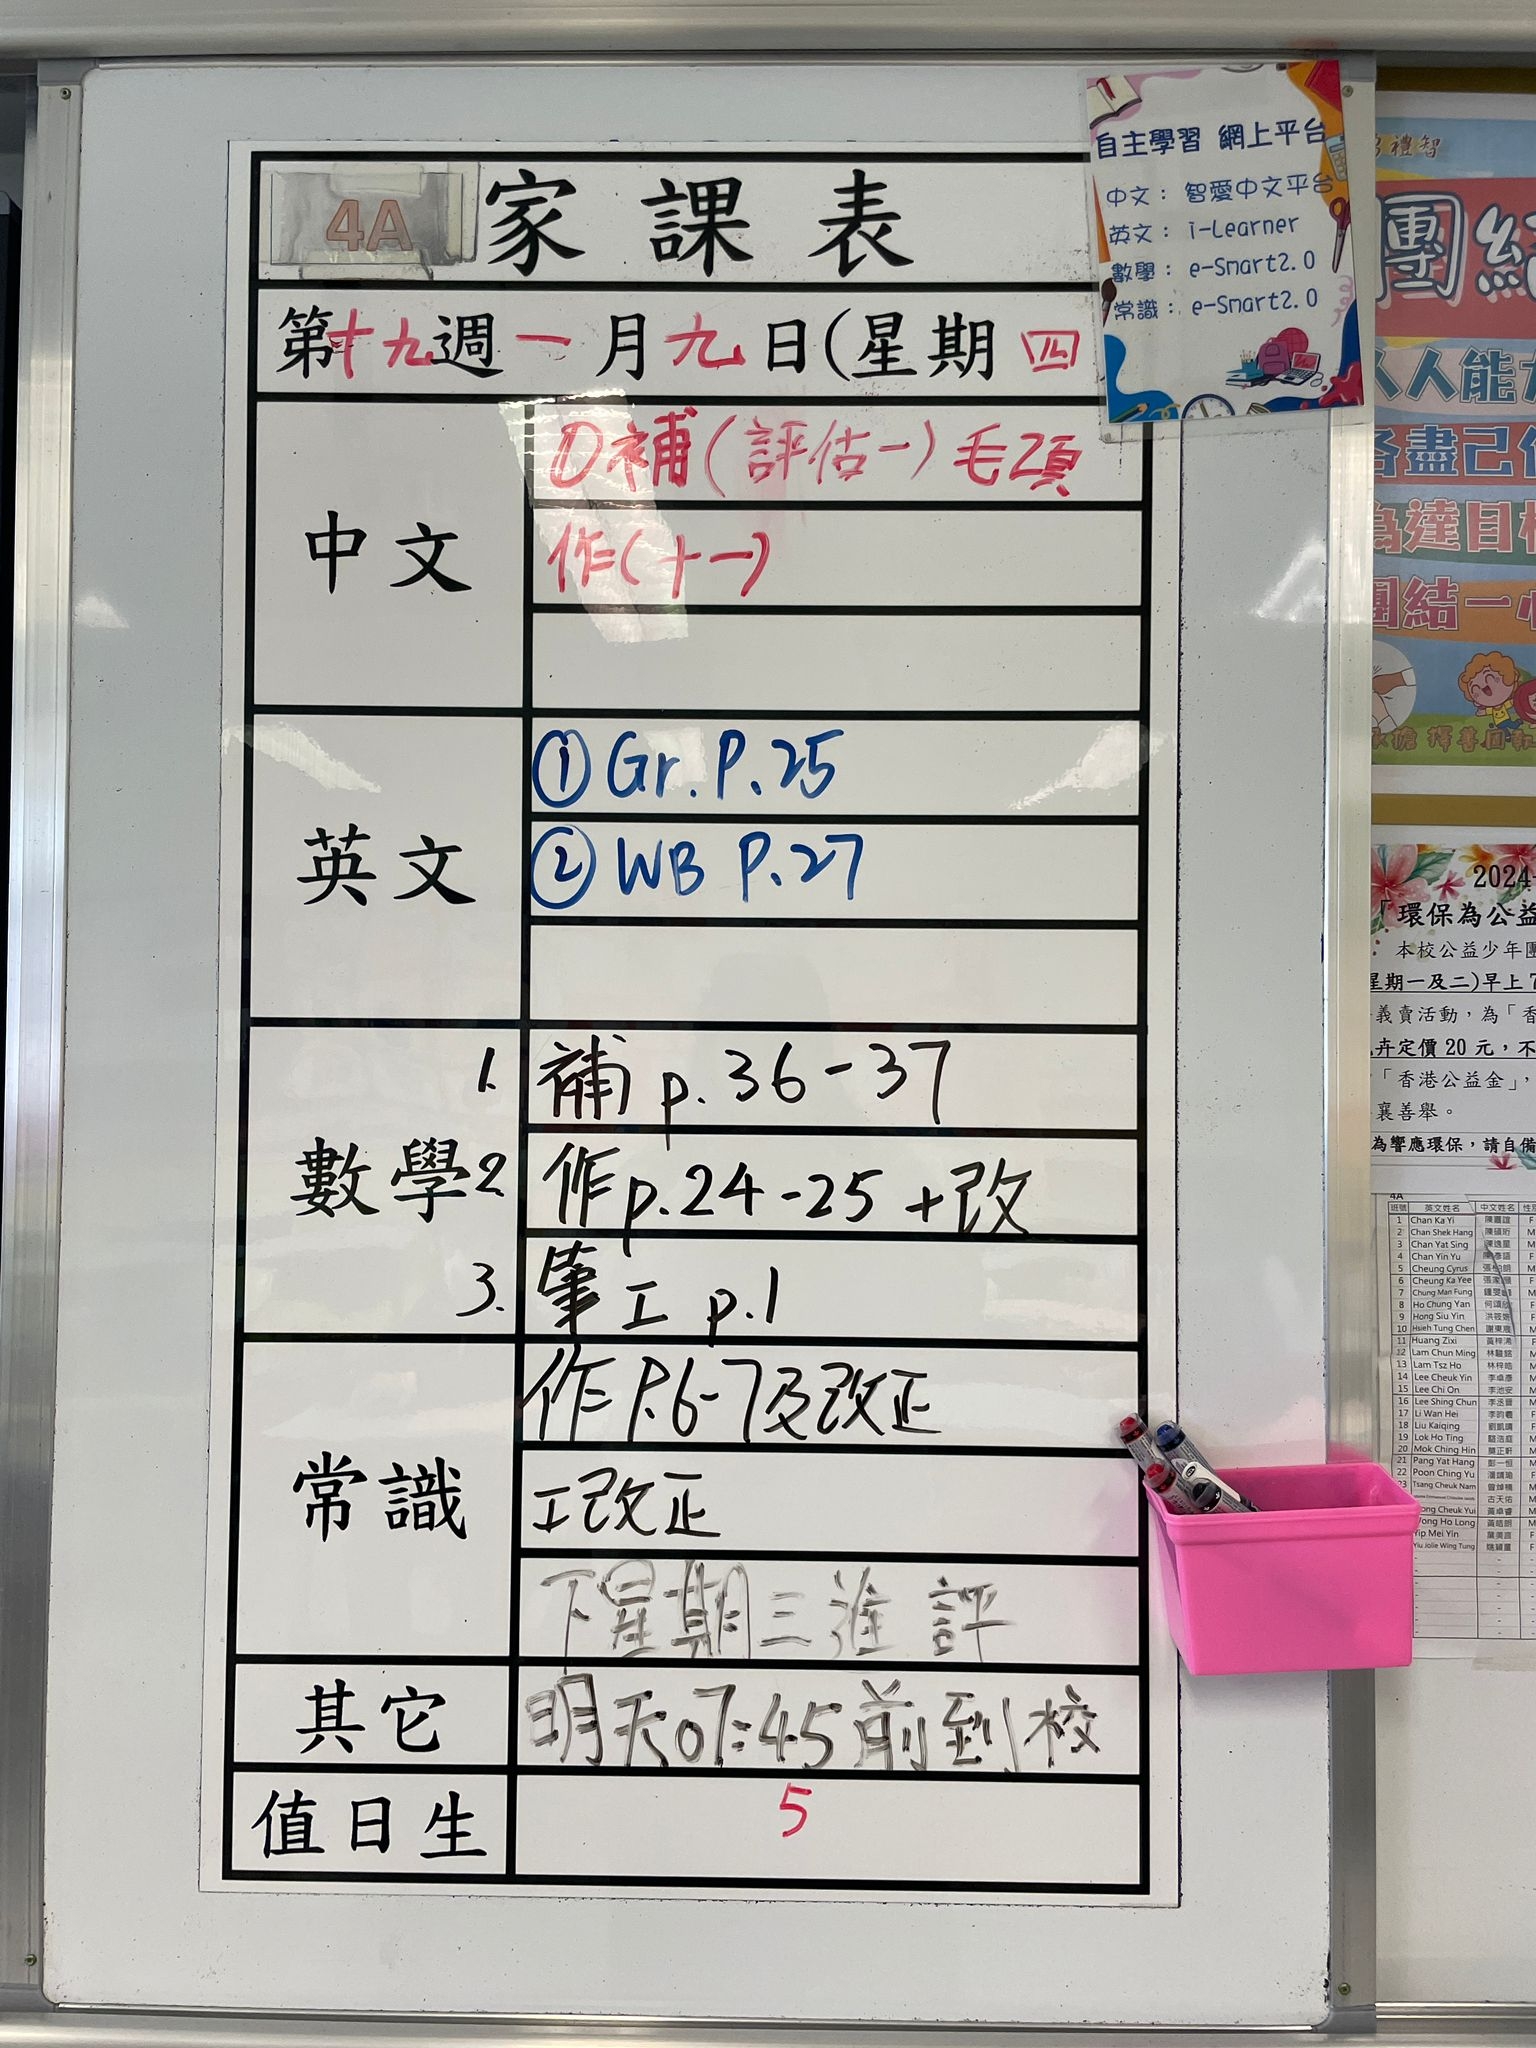 4A 家課表
第十九週 一月九日(星期四
中文
①補(評估一)毛項
作(十一)
英文
①Gr. P.25
②WB P.27
數學
1. 補 p.36-37
2. 作 p.24-25 +改
3. 筆工 p.1
常識
作 P.6-7及改正
工改正
下星期三進評
其它
明天07:45前到校
值日生
5
自主學習 網上平台
中文： 智愛中文平台
英文： i-Learner
數學： e-Smart2.0
常識： e-Smart2.0
禮智
團結
人人能
各盡己
為達目標
團結一
擇善固執
2024-
「環保為公益
本校公益少年團
星期一及二)早上7
義賣活動，為「香
卉定價20元，不
「香港公益金」，
襄善舉。
為響應環保，請自備
4A
班號 英文姓名 中文姓名
1 Chan Ka Yi
2 Chan Shek Hang
3 Chan Yat Sing
4 Chan Yin Yu
5 Cheung Cyrus
6 Cheung Ka Yee
7 Chung Man Fung
8 Ho Chung Yan
9 Hong Siu Yin
10 Hsieh Tung Chen
11 Huang Zixi
12 Lam Chun Ming
13 Lam Tsz Ho
14 Lee Cheuk Yin
15 Lee Chi On
16 Lee Shing Chun
17 Li Wan Hei
18 Liu Kaiqing
19 Lok Ho Ting
20 Mok Ching Hin
21 Pang Yat Hang
22 Poon Ching Yu
23 Tsang Cheuk Nam
ong Cheuk Yui
Wong Ho Long
Yip Mei Yin
Yiu Jolie Wing Tung